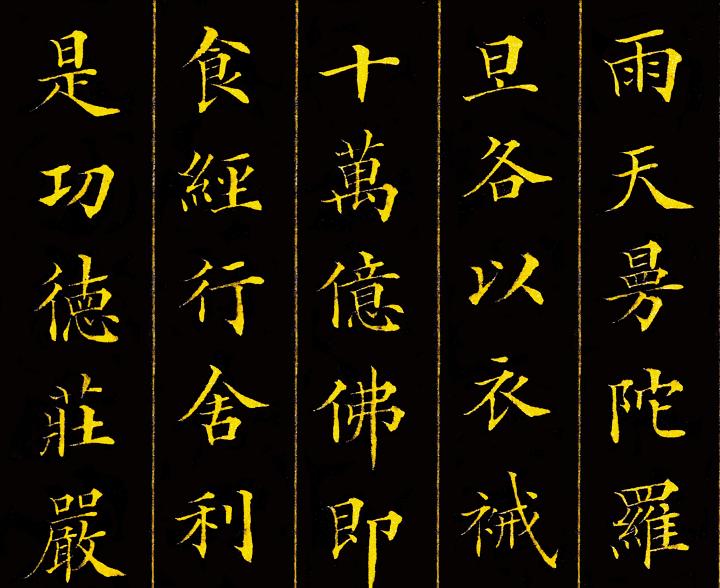 雨天曼陀羅
旦各以衣裓
十萬億佛即
食經行舍利
是功德莊嚴